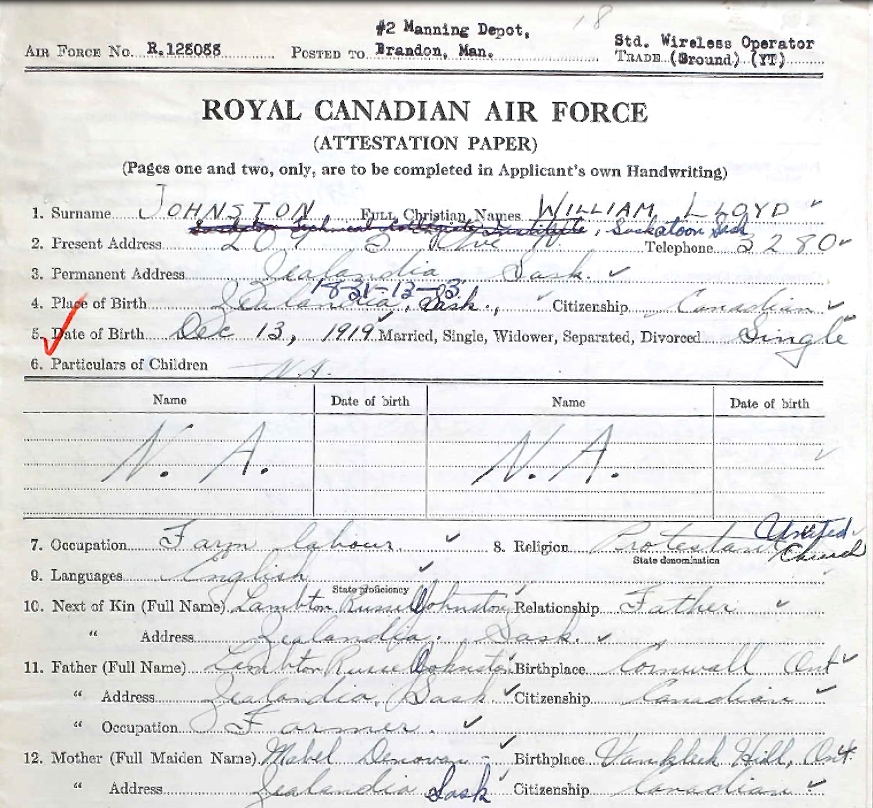 18
#2 Manning Depot,
AIR FORCE NO. R.128088 POSTED TO Brandon, Man. Std. Wireless Operator
TRADE (Ground) (YT)
ROYAL CANADIAN AIR FORCE
(ATTESTATION PAPER)
(Pages one and two, only, are to be completed in Applicant's own Handwriting)
1. Surname JOHNSTON FULL Christian Names WILLIAM LLOYD
Saskatoon Technical Collegiate Institute, Saskatoon Sask
2. Present Address 209 2 Ave N Telephone 3280
3. Permanent Address Zealandia Sask.
18-31-12-03
4. Place of Birth Zealandia, Sask., Citizenship Canadian
5. Date of Birth Dec 13, 1919 Married, Single, Widower, Separated, Divorced Single
6. Particulars of Children N.A.
Name Date of birth Name Date of birth
N. A. N. A.
7. Occupation Farm labour. 8. Religion Protestant United Church
State denomination
9. Languages English
State proficiency
10. Next of Kin (Full Name) Lambton Russell Johnston Relationship Father
" Address Zealandia. Sask.
11. Father (Full Name) Lambton Russell Johnston Birthplace Cornwall Ont
" Address Zealandia, Sask Citizenship Canadian
" Occupation Farmer.
12. Mother (Full Maiden Name) Mabel Denovan - Birthplace Vankleek Hill, Ont.
" Address Zealandia Sask Citizenship Canadian